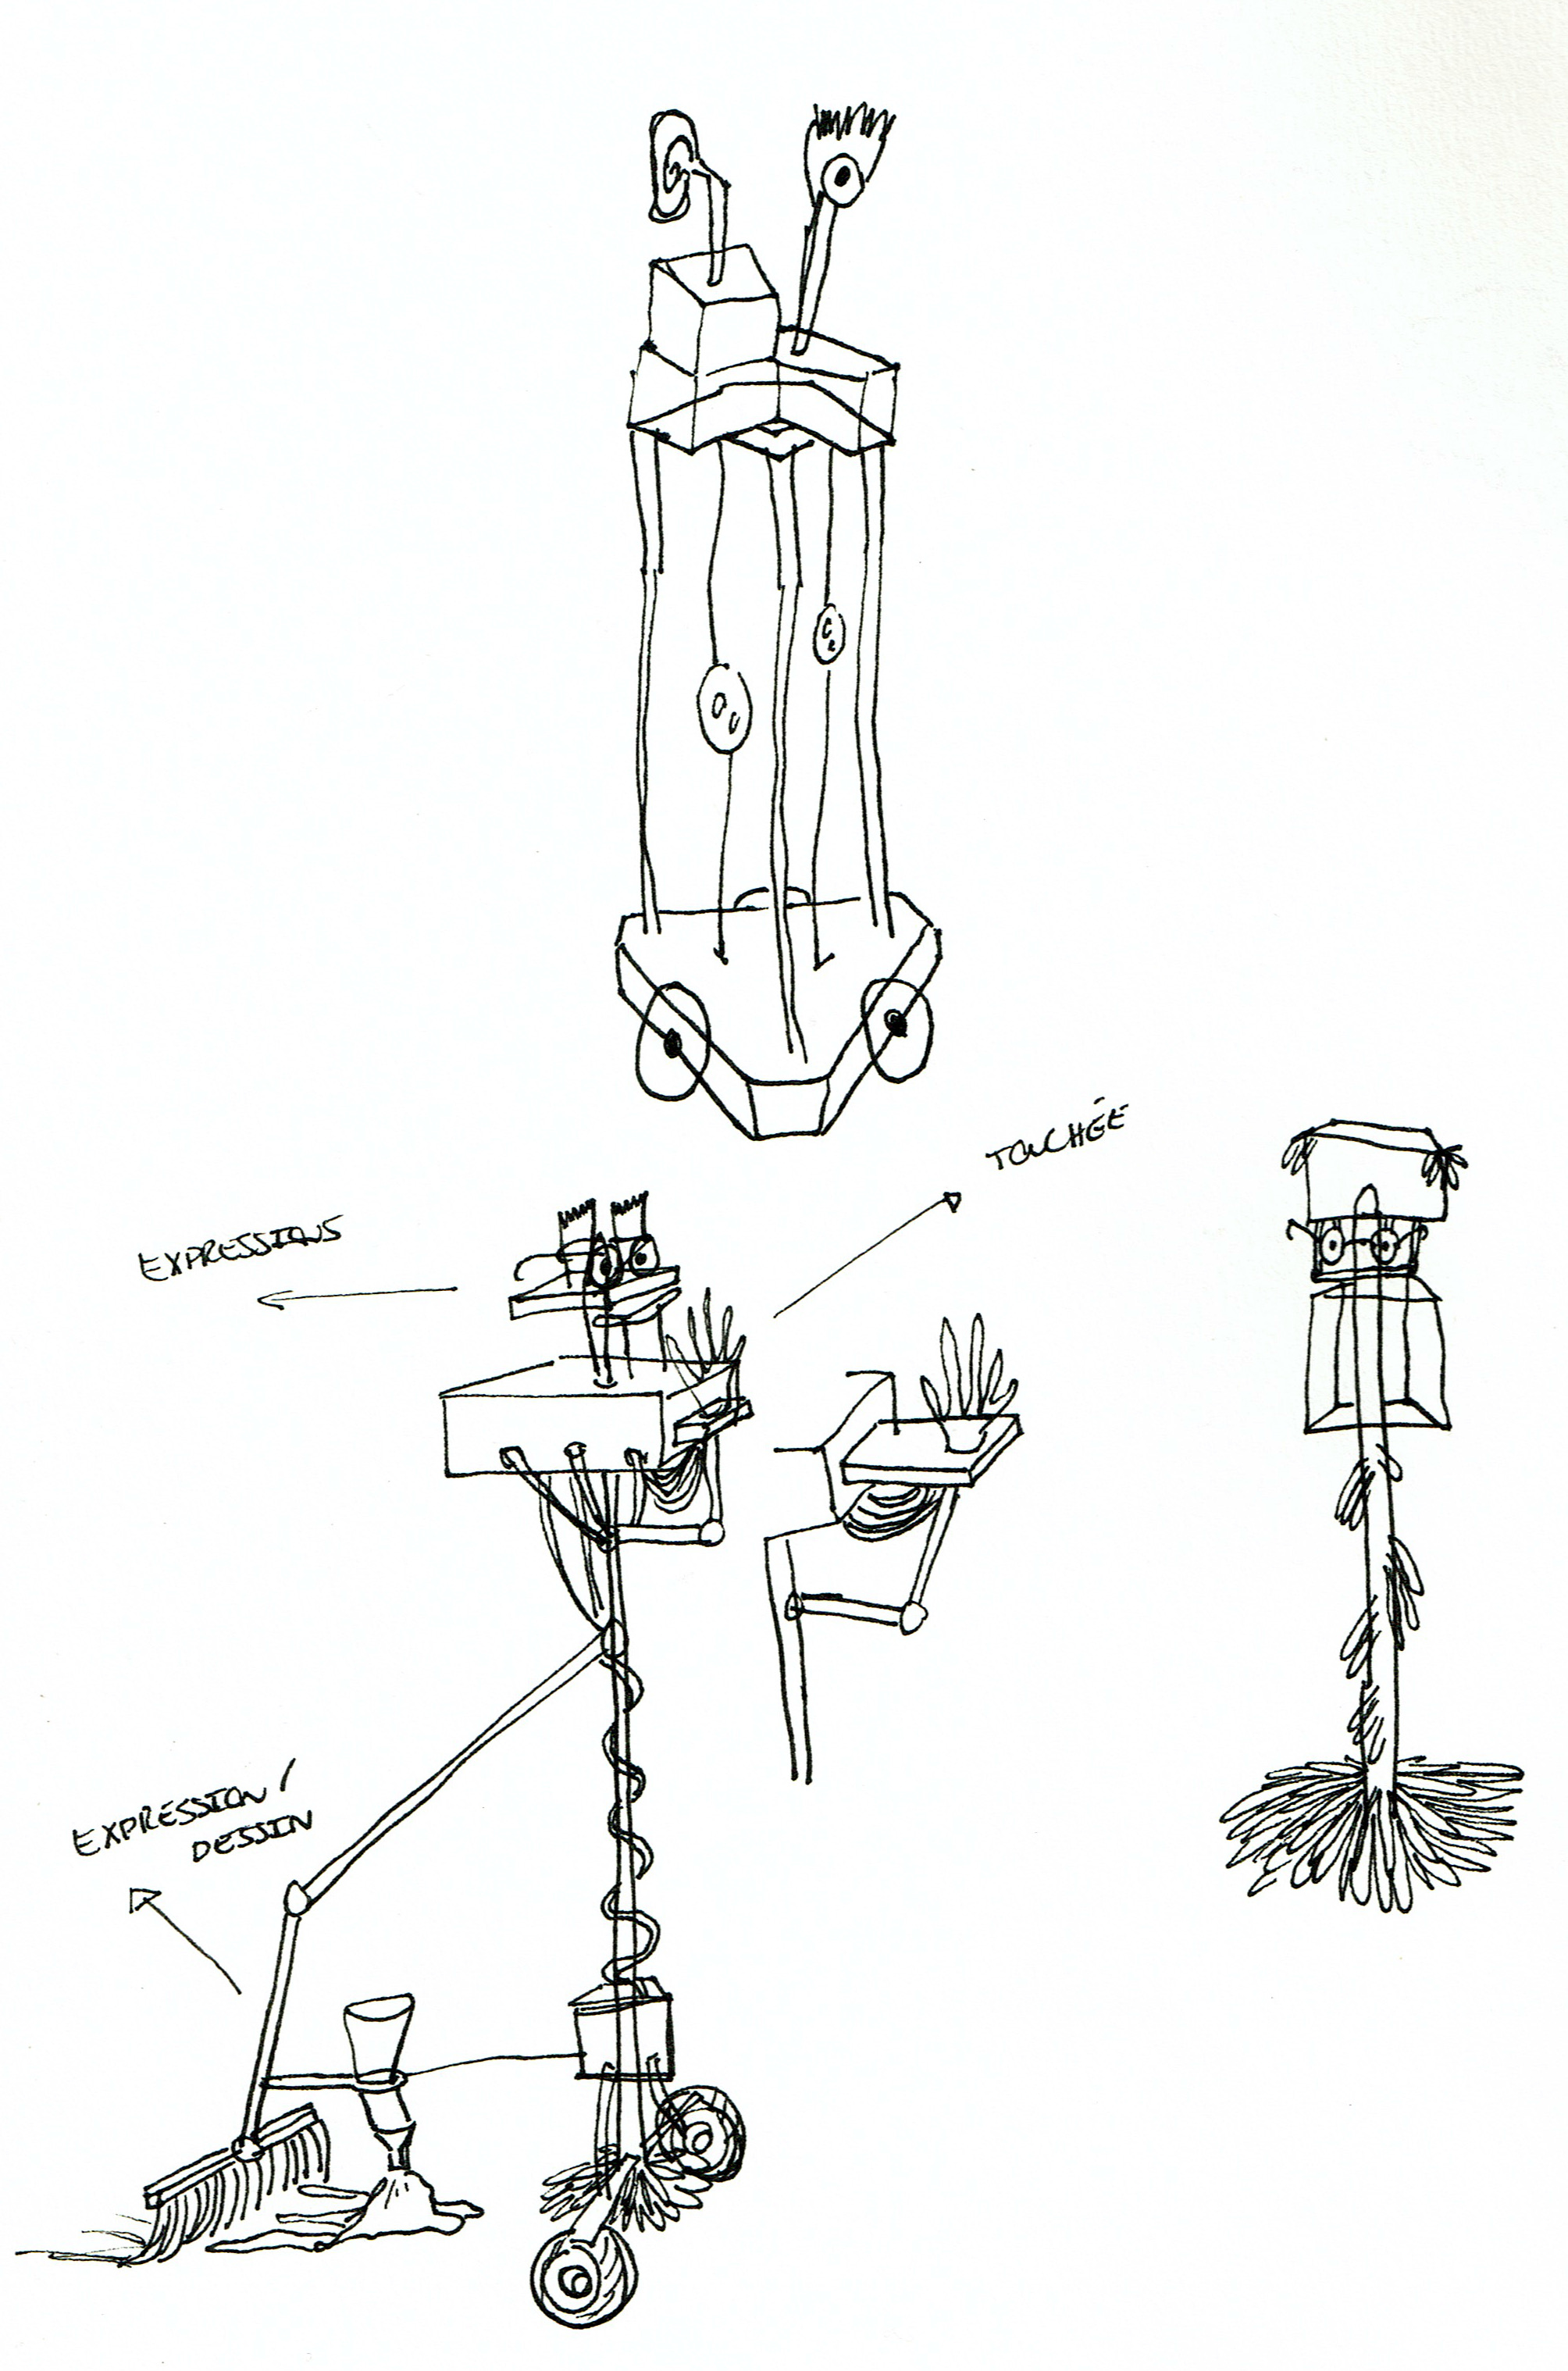 TOUCHÉE
EXPRESSIONS
EXPRESSION /
DESSIN